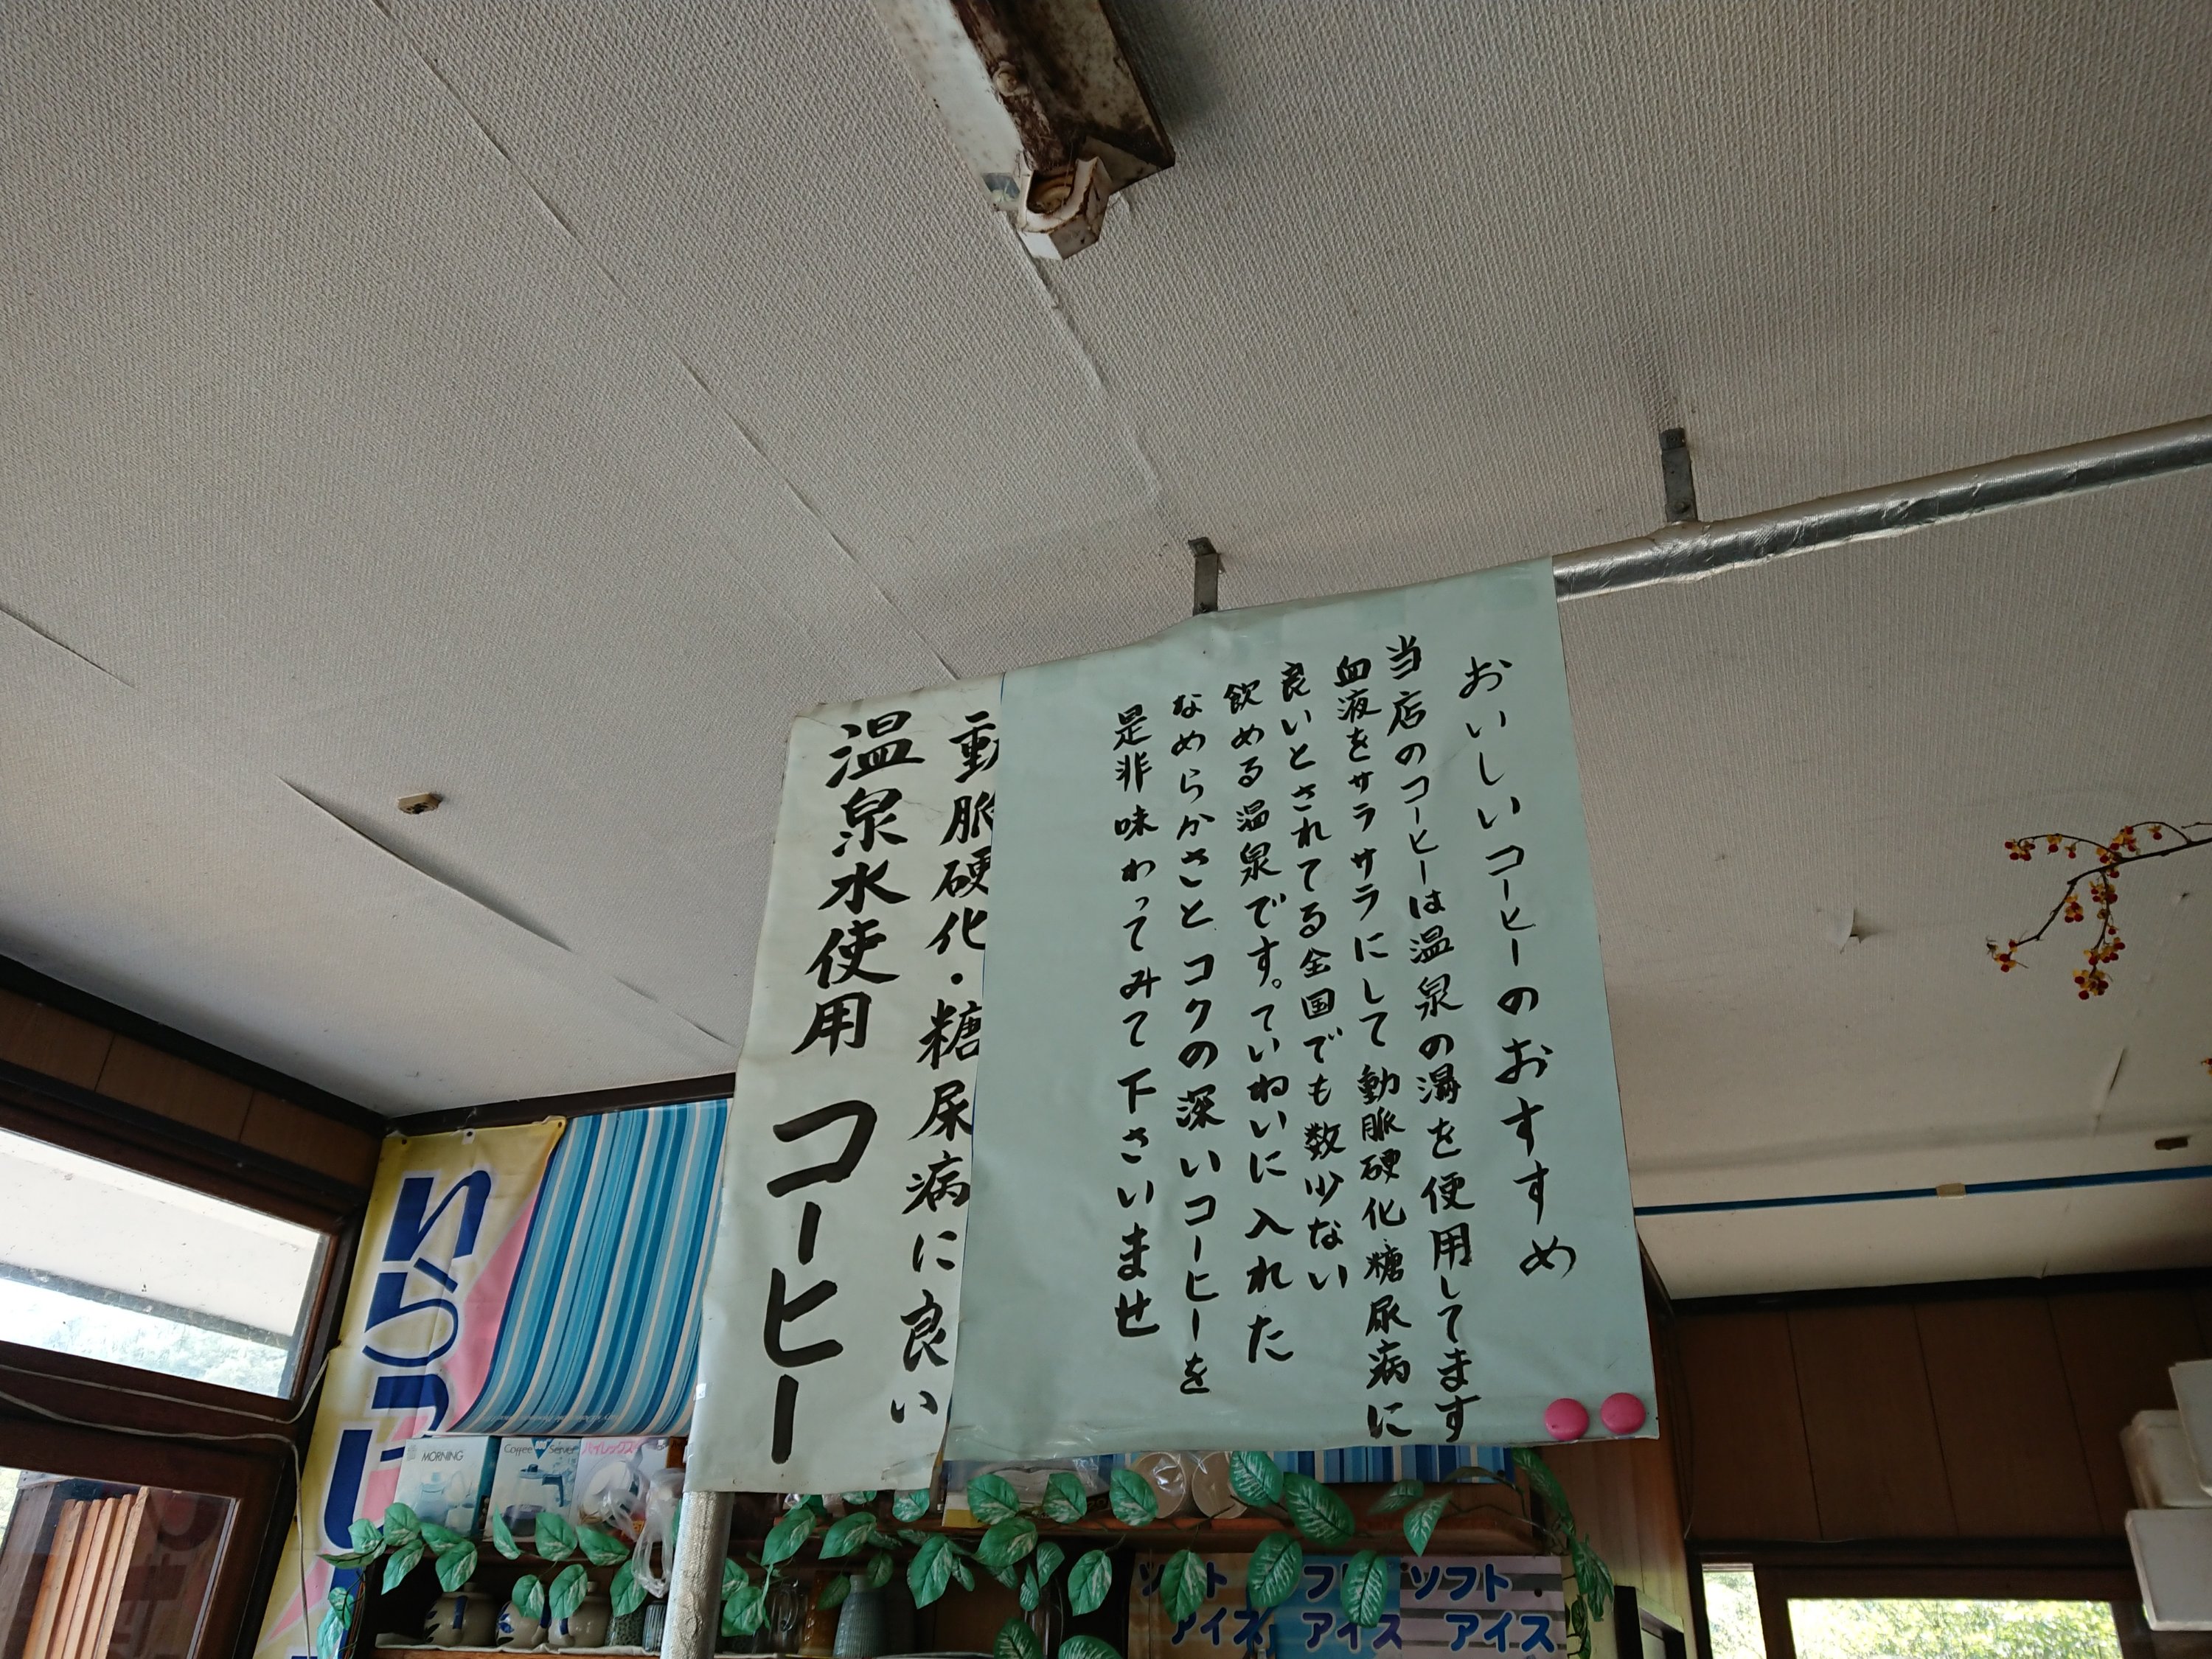 おいしいコーヒーのおすすめ
当店のコーヒーは温泉の湯を使用してます
血液をサラサラにして動脈硬化糖尿病に
良いとされてる全国でも数少ない
飲める温泉です。ていねいに入れた
なめらかさとコクの深いコーヒーを
是非味わってみて下さいませ
動脈硬化・糖尿病に良い
温泉水使用 コーヒー
MORNING
Coffee Server
パイレックス
ソフト
アイス
アイス
ソフト
アイス